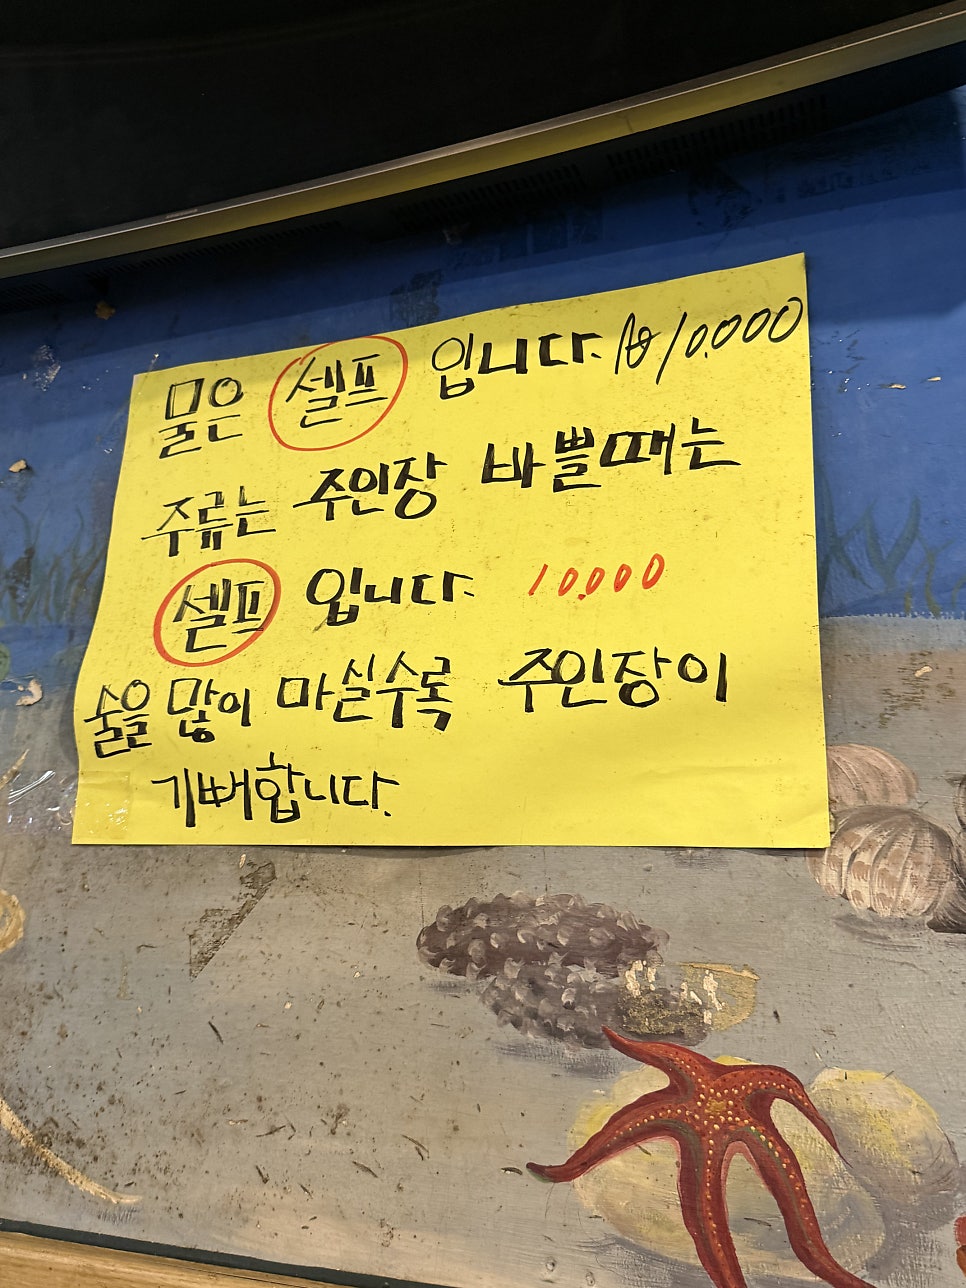 물은 셀프 입니다. ₩10.000
주류는 주인장 바쁠때는
셀프 입니다. 10.000
술을 많이 마실수록 주인장이
기뻐합니다.